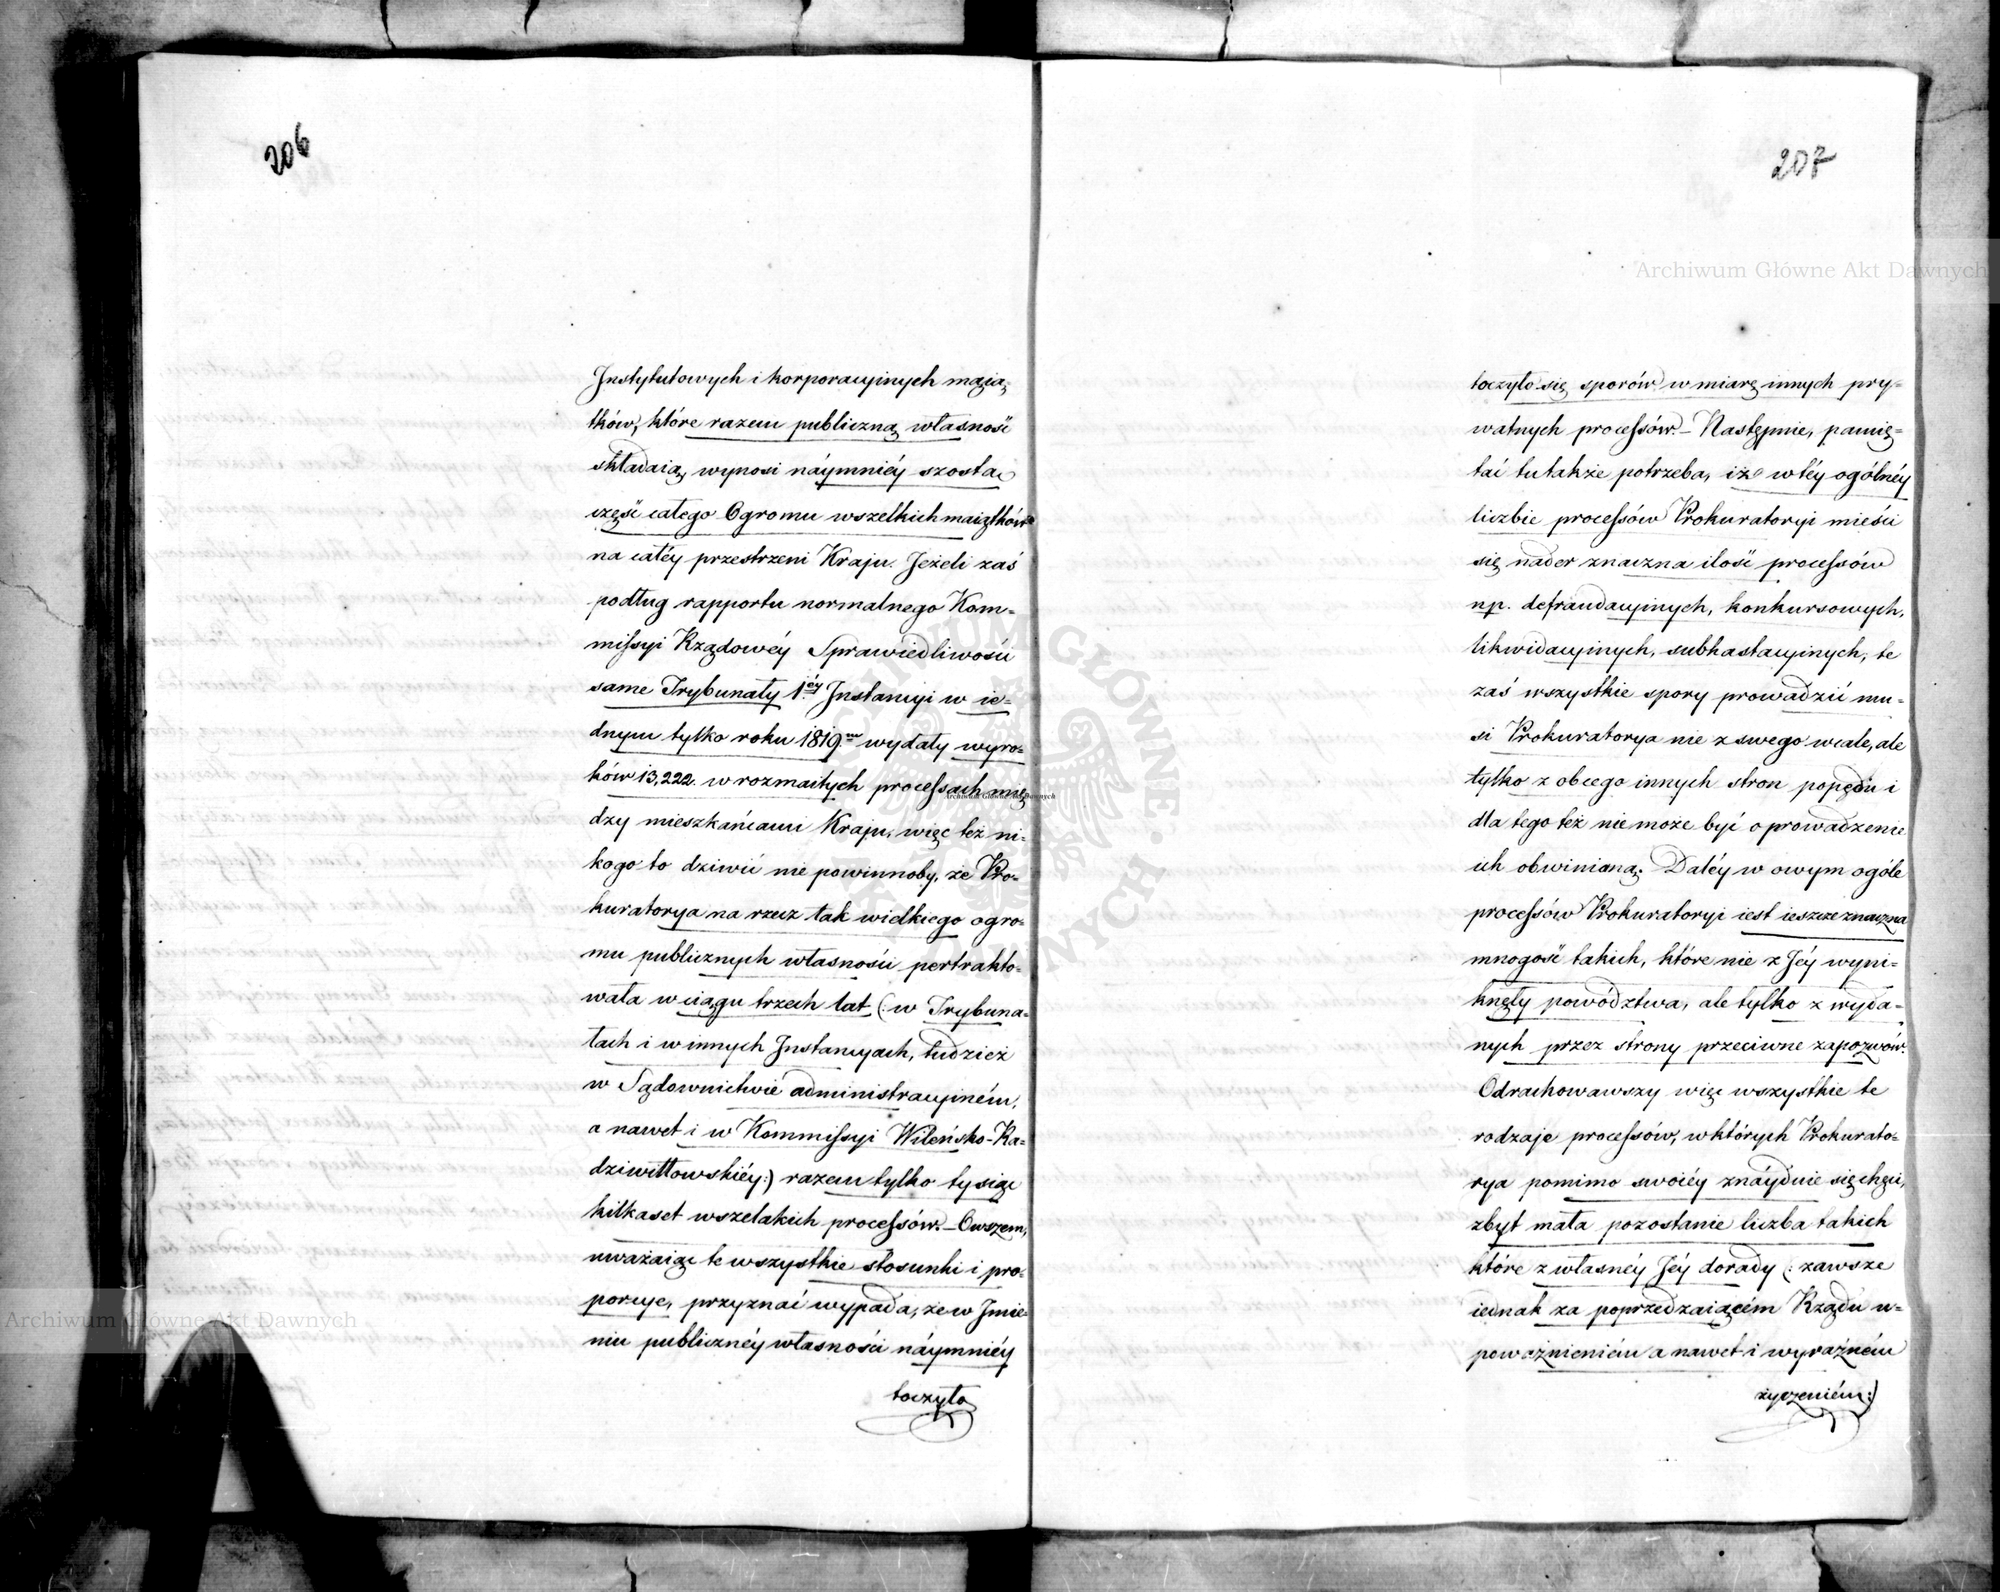 206
Instytutowych i korporacyinych maią-
tków, które razem publiczną własność
składaią, wynosi náymniéy szosta
część całego Ogromu wszelkich maiątków
na całéy przestrzeni Kraju. Jeżeli zaś
podług rapportu normalnego Kom-
missyi Rządowéy Sprawiedliwości
same Trybunały 1éy Instancyi w ie-
dnym tylko roku 1819.m wydały wyro-
ków 13,222. w rozmaitych processach mię
dzy mieszkańcami Kraju, więc też ni-
kogo to dziwić nie powinnoby, że Pro-
kuratorya na rzecz tak wielkiego ogro-
mu publicznych własności pertrakto-
wała w ciągu trzech lat (: w Trybuna-
łach i w innych Instancyach, tudzież
w Sądownictwie administracyiném,
a nawet i w Kommissyi Wileńsko-Ra-
dziwiłłowskiéy:) razem tylko tysiąc
kilkaset wszelakich processów. – Owszem,
uważaiąc te wszystkie stosunki i pro-
porcye, przyznać wypada, że w Jmie-
niu publicznéy własności náymniéy
toczyło
207
toczyło się sporów w miarę innych pry-
watnych processów. – Następnie, pamię-
tać tu także potrzeba, iż w téy ogólnéy
liczbie processów Prokuratoryi mieści
się nader znaczna ilość processów
np. defraudacyinych, konkursowych,
likwidacyinych, subhastacyinych, te
zaś wszystkie spory prowadzić mu-
si Prokuratorya nie z swego wcale, ale
tylko z obcego innych stron popędu i
dla tego też nie może być o prowadzenie
ich obwinianą. Daléy w owym ogóle
processów Prokuratoryi iest ieszcze znaczna
mnogość takich, które nie z Jéy wyni-
knęły powództwa, ale tylko z wyda-
nych przez strony przeciwne zapozwów.
Odrachowawszy więc wszystkie te
rodzaje processów, w których Prokurato-
rya pomimo swoiéy znáydzie się chęci,
zbyt mała pozostanie liczba takich
które z własnéy Jéy dorady (: zawsze
iednak za poprzedzaiącém Rządu u-
poważnieniém a nawet i wyraźném
życzeniém:)
Archiwum Główne Akt Dawnych
Archiwum Główne Akt Dawnych
Archiwum Główne Akt Dawnych